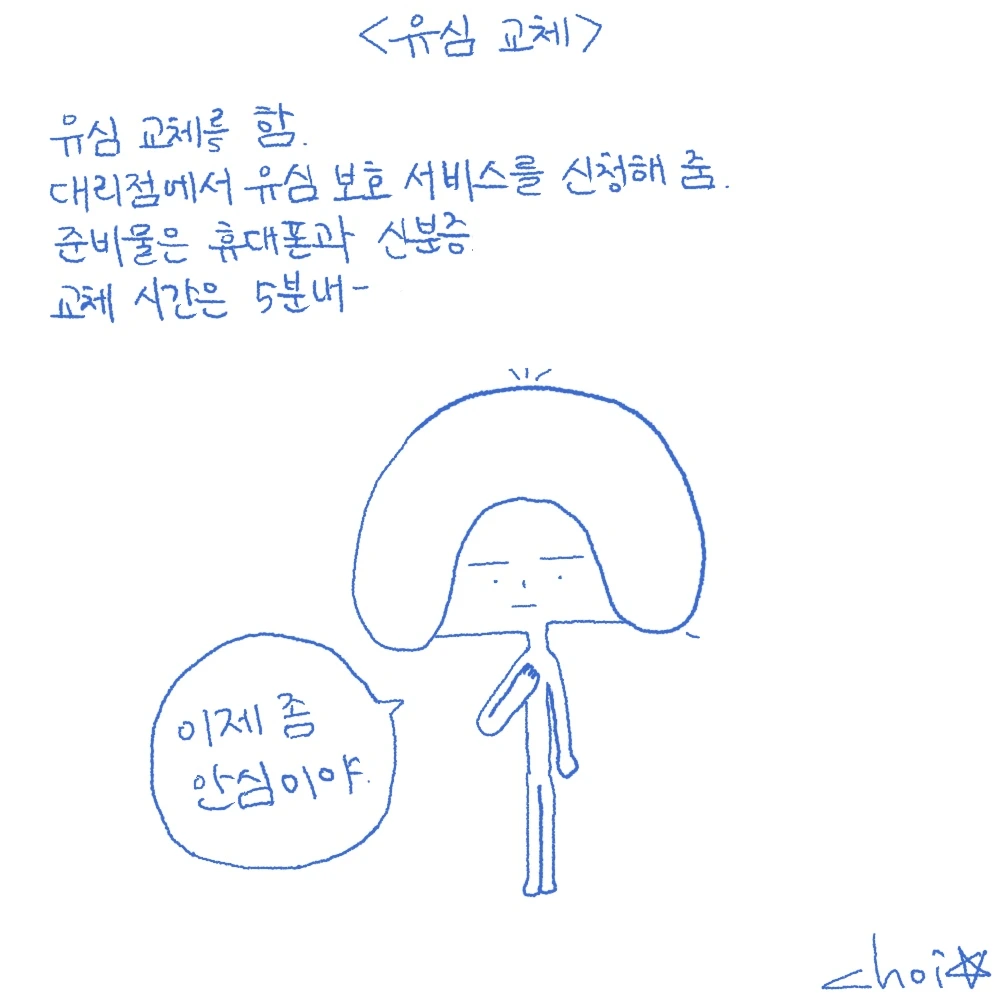 <유심 교체>
유심 교체를 함.
대리점에서 유심 보호 서비스를 신청해 줌.
준비물은 휴대폰과 신분증
교체 시간은 5분내-
이제 좀
안심이야.
choi☆